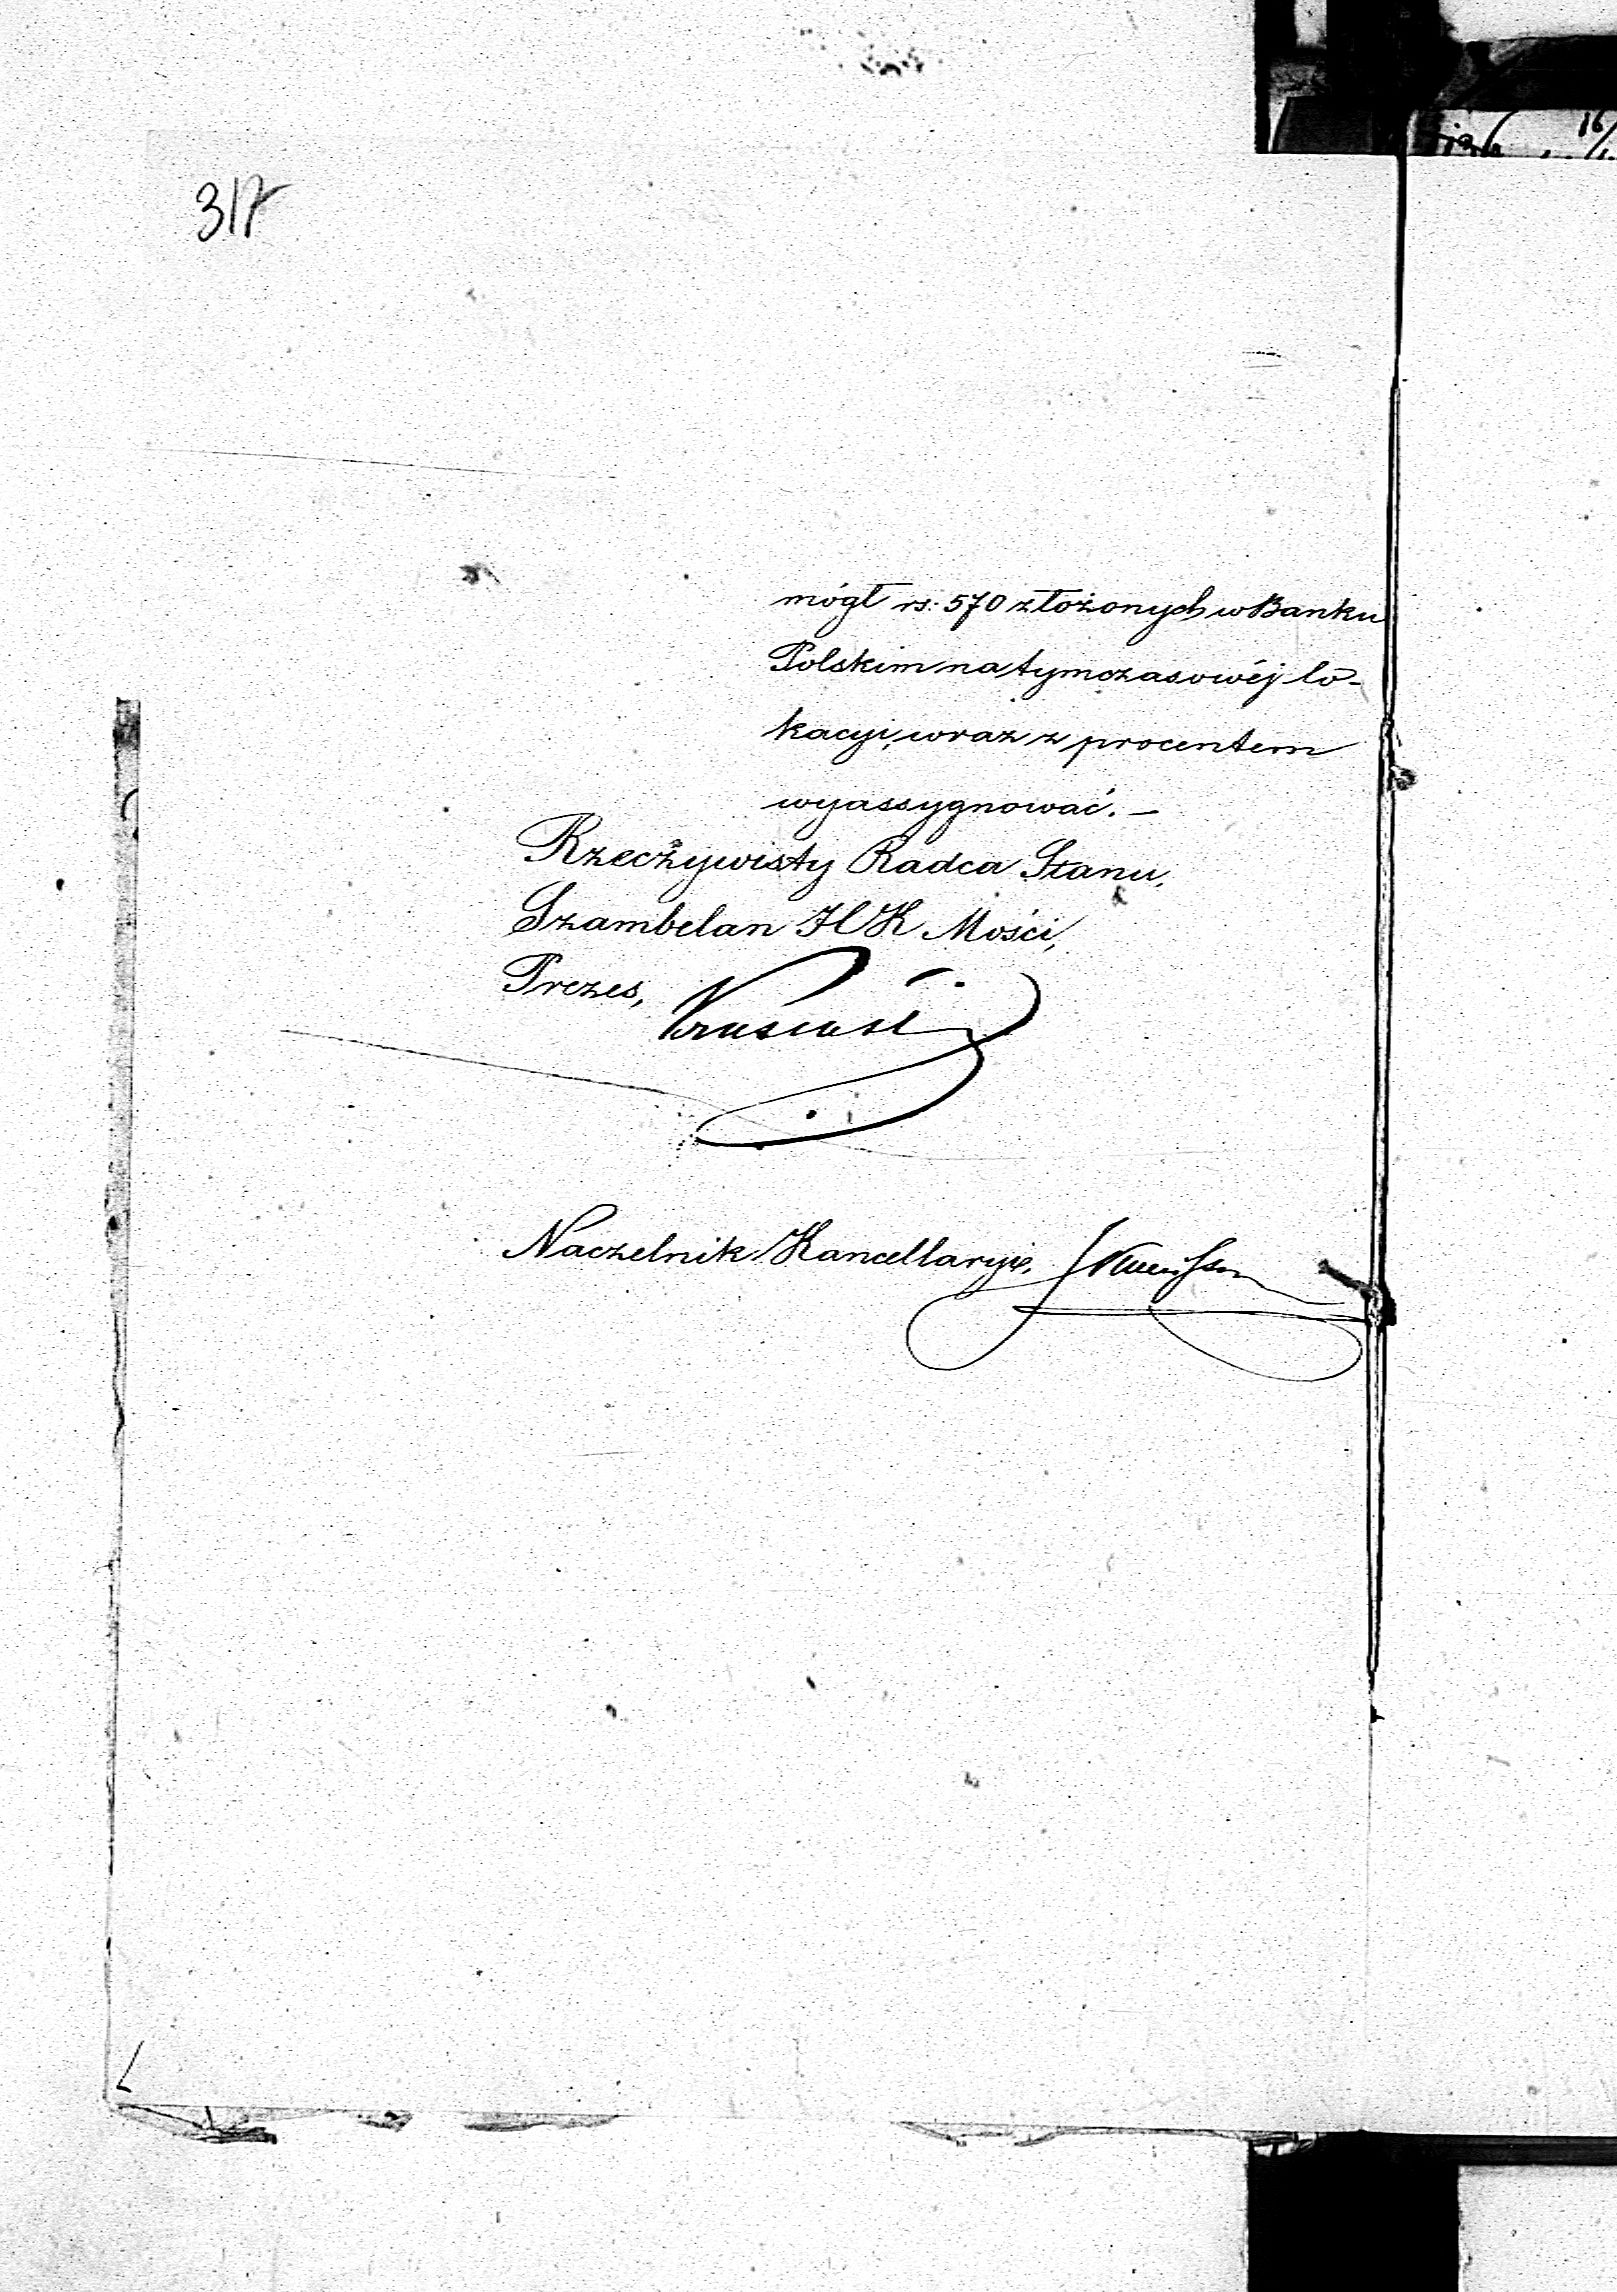 317
mógł rs: 570 złożonych w Banku
Polskim na tymczasowéj lo-
kacyi, wraz z procentem
wyassygnować. —
Rzeczywisty Radca Stanu,
Szambelan JCK Mości,
Prezes,
Naczelnik Kancellaryi,